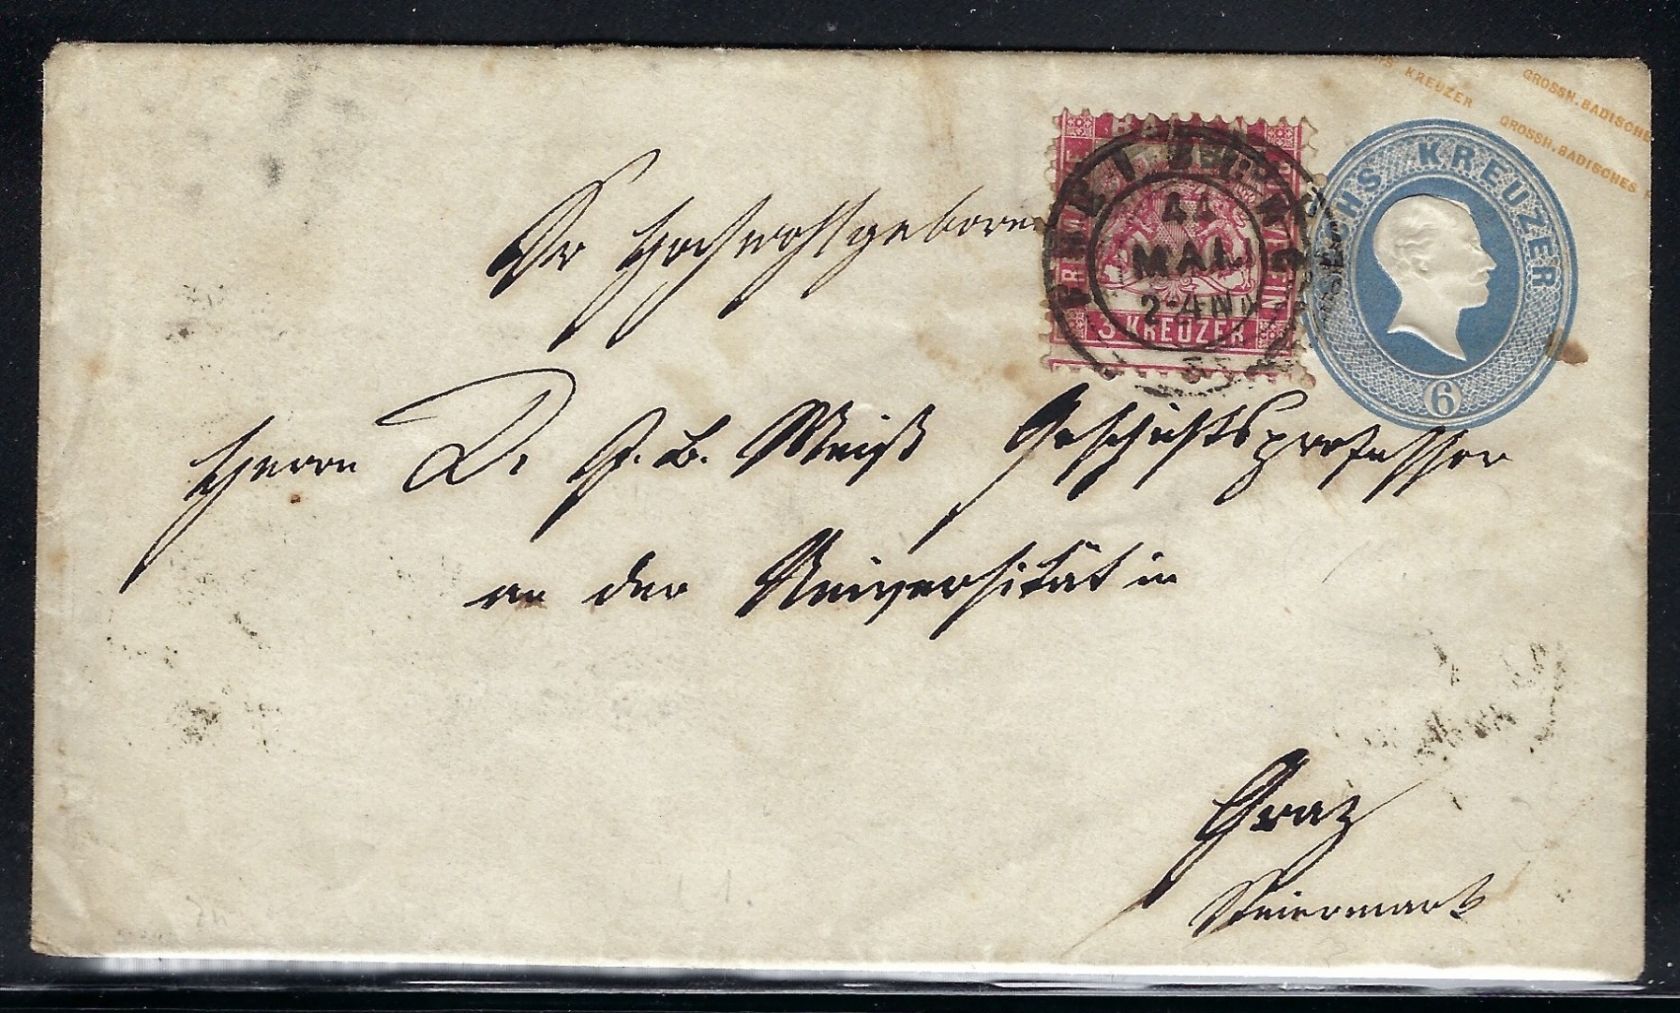 GROSSH. BADISCHE
S KREUZER
GROSSH. BADISCHES
SECHS KREUZER
6
BADEN
FREIMARKE
3 KREUZER
11
MAI
2-4N
Sr Hochwohlgeboren
Herrn Dr J. B. Weiß Geschichtsprofessor
an der Universität in
Graz
Steiermark